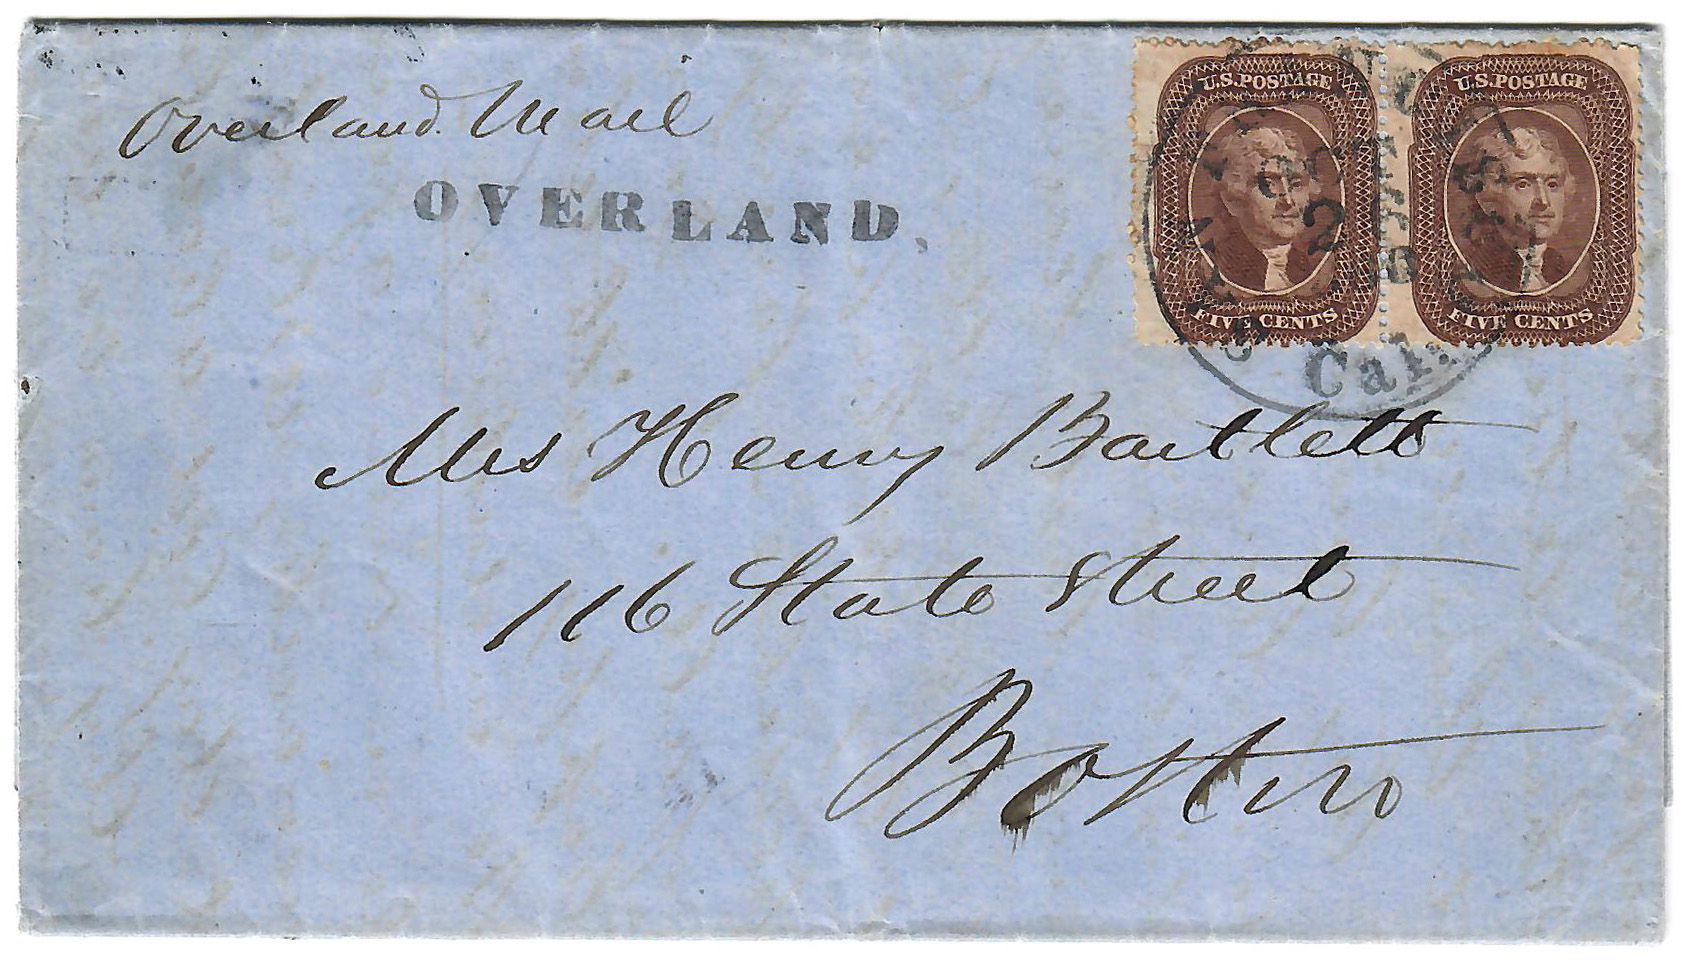 Overland Mail
OVERLAND.
U.S. POSTAGE
FIVE CENTS
U.S. POSTAGE
FIVE CENTS
OCT
Cal.
Mrs Henry Bartlett
116 State Street
Boston